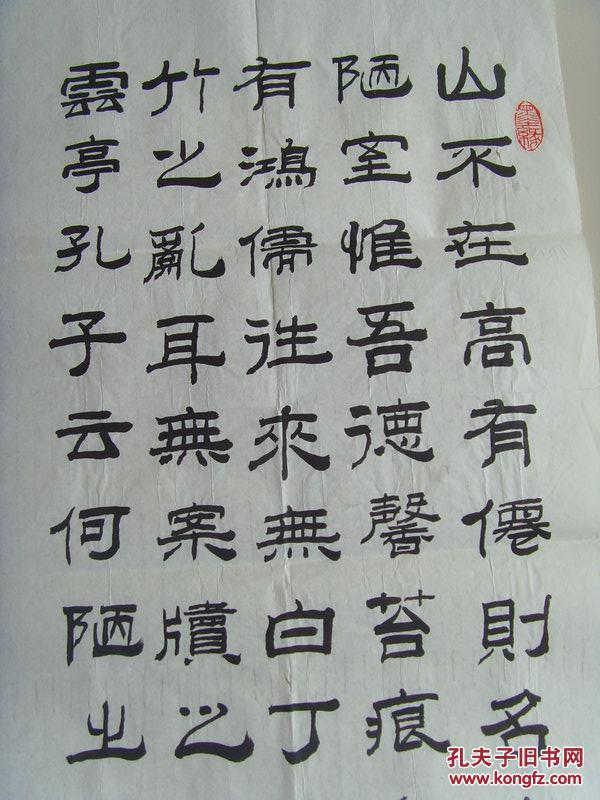 墨緣
山不在高有僊則名
陋室惟吾德馨苔痕
有鴻儒往來無白丁
竹之亂耳無案牘之
雲亭孔子云何陋之
孔夫子旧书网
www.kongfz.com